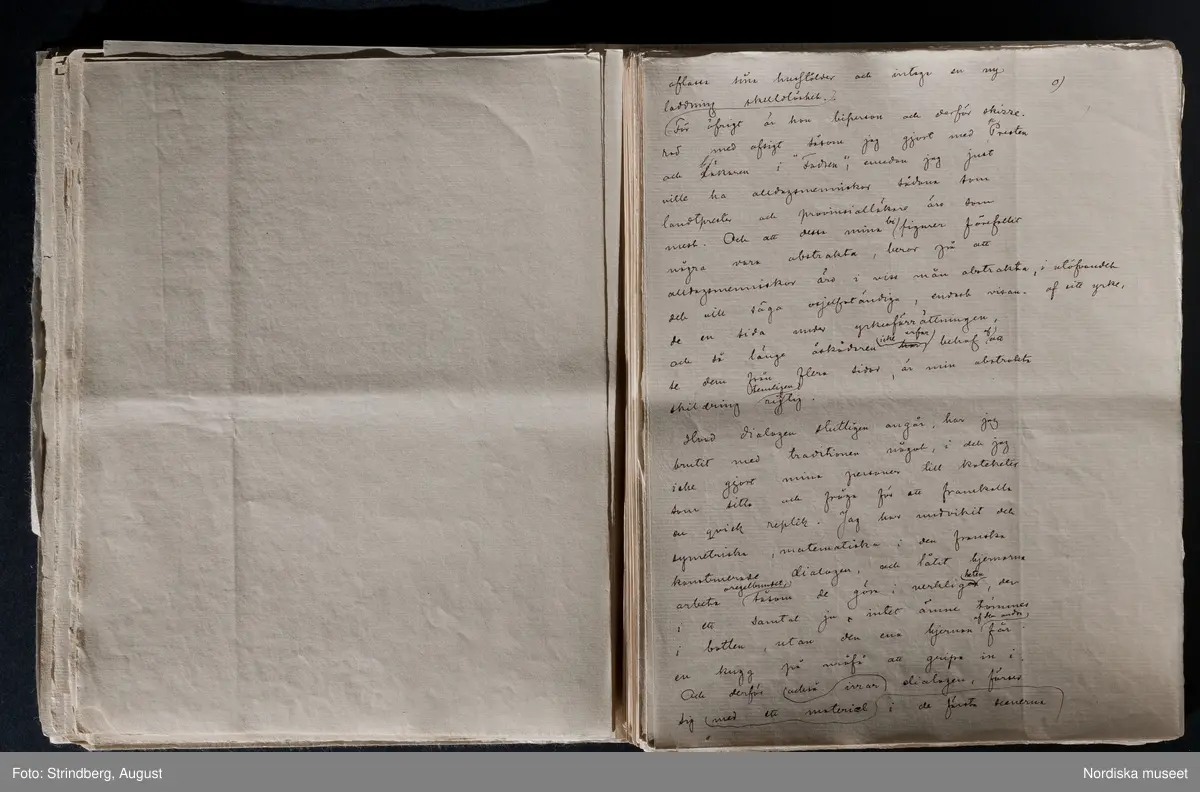 9)
aflassa sina hushålder och intaga en ny
laddning skuldlöshet.
För öfrigt är hon biperson och derför skizze-
rad med afsigt såsom jag gjort med Presten
och Läkaren i "Fadren", emedan jag just
ville ha alldagsmenniskor sådana som
landtprester och provinsialläkare äro som
mest. Och att dessa mina bifigurer förefallit
några vara abstrakta, beror på att
alldagsmenniskor äro i viss mån abstrakta, i utöfvandet
det vill säga osjelfständiga, endast visan- af sitt yrke,
de en sida under yrkesförrättningen,
och så länge åskådaren icke erfar behof af att
se dem från flera sidor, är min abstrakta
skildring temligen rigtig.
Hvad dialogen slutligen angår, har jag
brutit med traditionen något, i det jag
icke gjort mina personer till kateketer
som sitta och fråga för att framkalla
en qvick replik. Jag har undvikit det
symetriska, matematiska i den franska
konstruerade dialogen, och låtit hjernorna
arbeta oregelbundet såsom de göra i verkligheten, der
i ett samtal ju intet ämne tömmes
i botten, utan den ena hjernan får af den andra
en kugg på måfå att gripa in i.
Och derför irrar också dialogen, förser
sig i de första scenerna med ett material
Foto: Strindberg, August
Nordiska museet